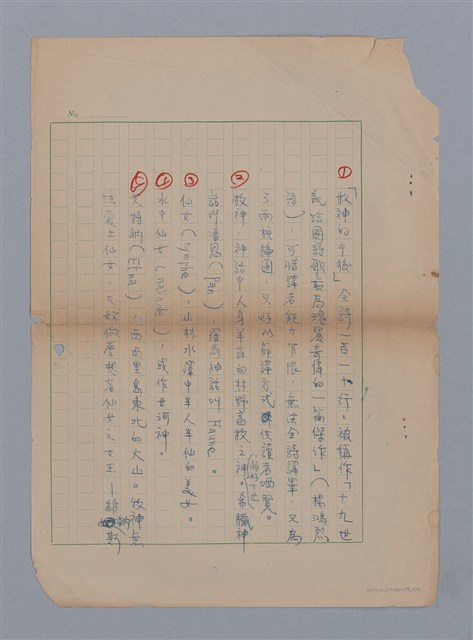 No.
① 「牧神的午後」全詩一百一十行。被稱作「十九世
紀法國詩歌最為鴻麗奇偉的一篇傑作」(楊鴻烈
語),可惜譯者能力有限,無法全詩譯畢,又為
了兩枚插圖,只好以節譯方式 供讀者哂覽。
② 牧神,神話中人身羊首的林野畜牧之神。希臘神
話叫潘恩(Pan),羅馬神話叫 Faune。
③ 仙女(nymphe),山林水澤中半人半仙的美女。
④ 水中仙女(naïade),或作女河神。
⑤ 艾特納(Etna),西西里島東北的火山。牧神無
法愛上仙女,只好做夢想著仙女之女王—維納斯